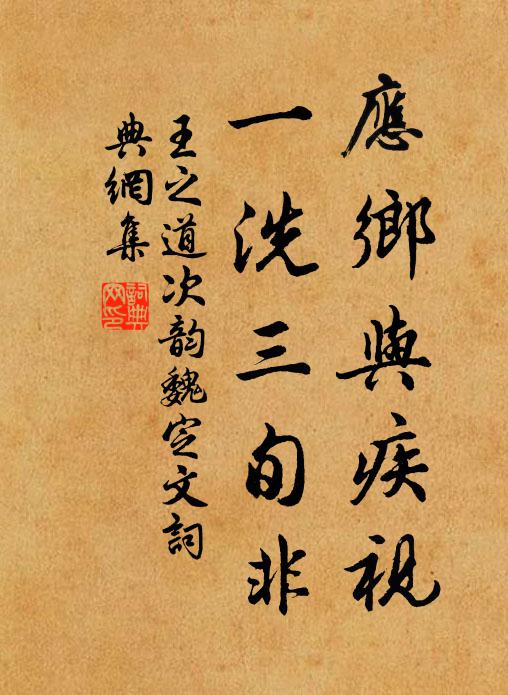 應鄉與疾視
一洗三旬非
王之道次韵魏定文詞
典網集
詞典網印